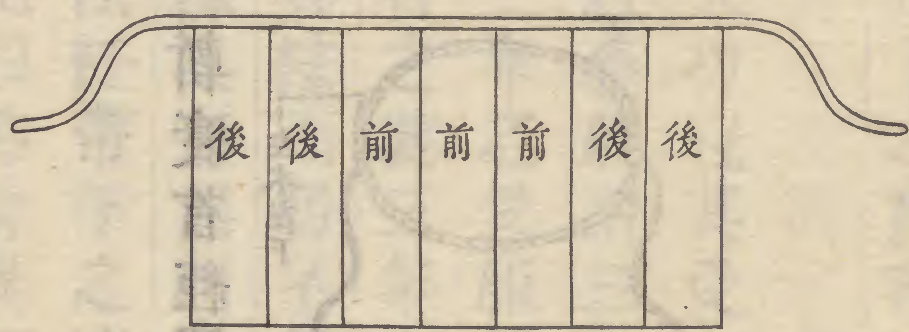 後後前前前後後